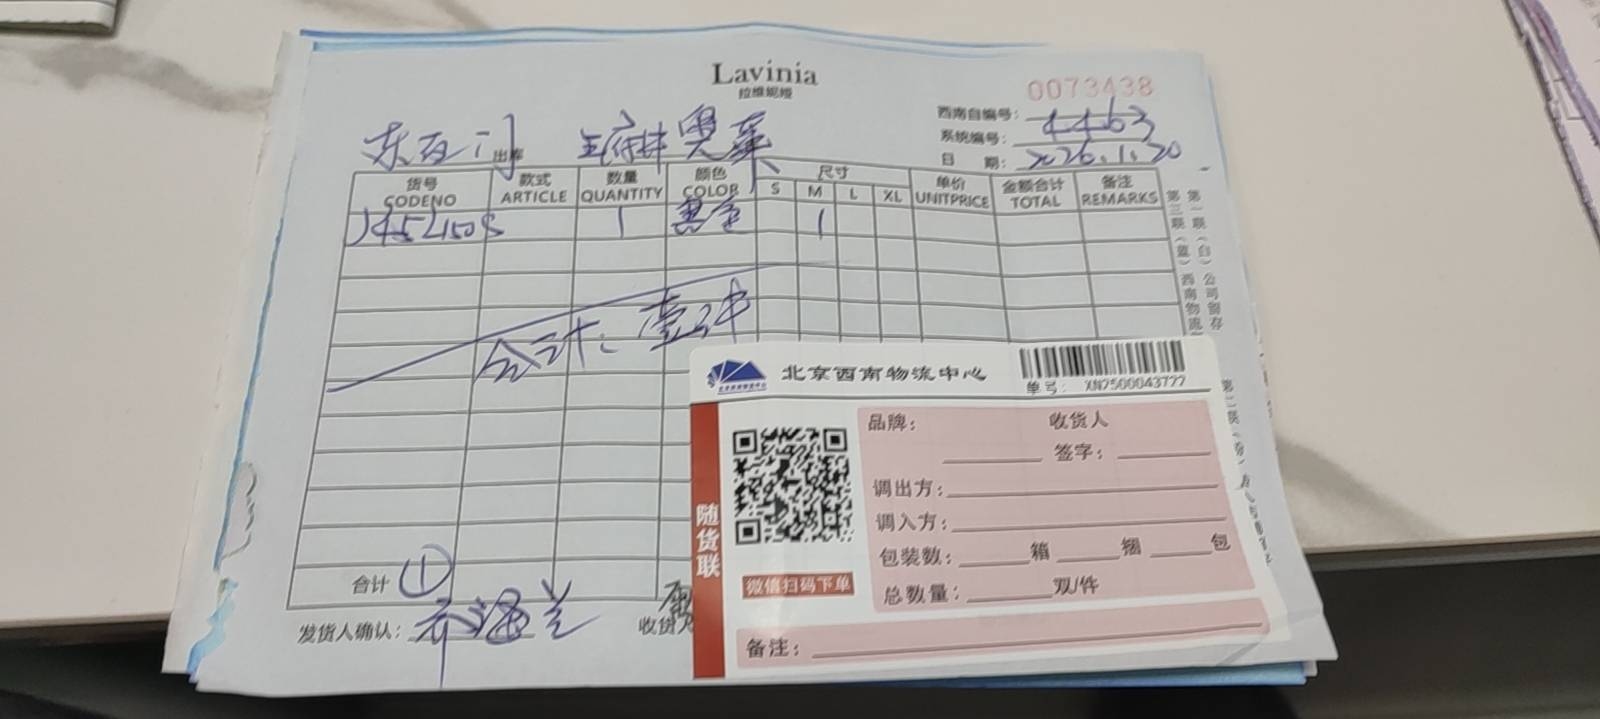 Lavinia
拉维妮娅
0073438
西南自编号：
系统编号： 4463
日 期： 2026.1.20
东 门 出库 王府井奥莱
货号 CODENO 款式 ARTICLE 数量 QUANTITY 颜色 COLOR 尺寸 S M L XL 单价 UNITPRICE 金额合计 TOTAL 备注 REMARKS
1 黑色 1
合计：壹件
第一联（白）公司留存
第三联（蓝）西南物流
北京西南物流中心
单号： XN2500043722
品牌： 收货人
签字：
调出方：
调入方：
包装数： 箱 捆 包
总数量： 双/件
备注：
随货联
微信扫码下单
合计 ①
发货人确认：
收货人